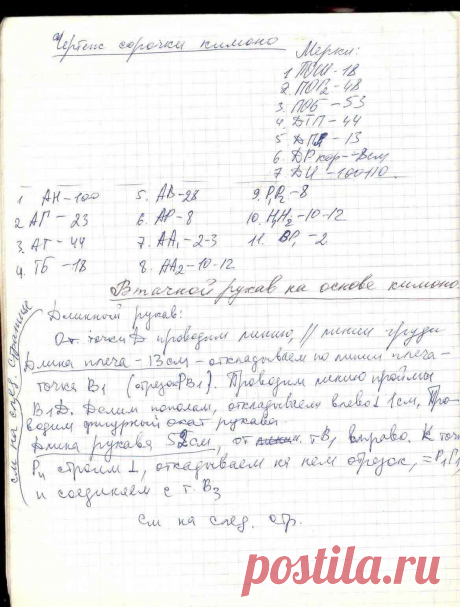 Чертеж сорочки кимоно
Мерки:
1 ПОШ-18
2. ПОГ2-48
3. ПОБ-53
4. ДТП-44
5. ДПл-13
6. ДРкор-8см
7 ДИ-100-110
1 АН-100
5. АВ-28
9. Р1Р2-8
2 АГ-23
6. АР-8
10. Н1Н2-10-12
3. АТ-44
7. АА1-2-3
11. ВР1-2
4. ТБ-18
8. АА2-10-12
Втачной рукав на основе кимоно.
Длинный рукав:
От точки D проводим линию, // линии груди
Длина плеча-13см-откладываем по линии плеча-
точка В1 (отрезок РВ1). Проводим линию проймы
В1D. Делим пополам, откладываем влево ⊥ 1см, Про-
водим фигурный окат рукава
Длина рукава 52см, от т В1 вправо. К точ
строим ⊥, откладываем на нем отрезок, =Р1Г1
и соединяем с т. В3
см на след. стр.
см на след. странице
postila.ru